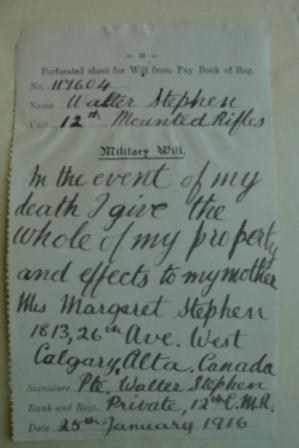 — 23 —
Perforated sheet for Will from Pay Book of Reg.
No. 117604
Name Walter Stephen
Unit 12th Mounted Rifles
Military Will.
In the event of my
death I give the
whole of my property
and effects to my mother
Mrs Margaret Stephen
1813, 26th Ave. West
Calgary, Alta. Canada
Signature Pte. Walter Stephen
Rank and Regt. Private, 12th C.M.R.
Date 25th January 1916